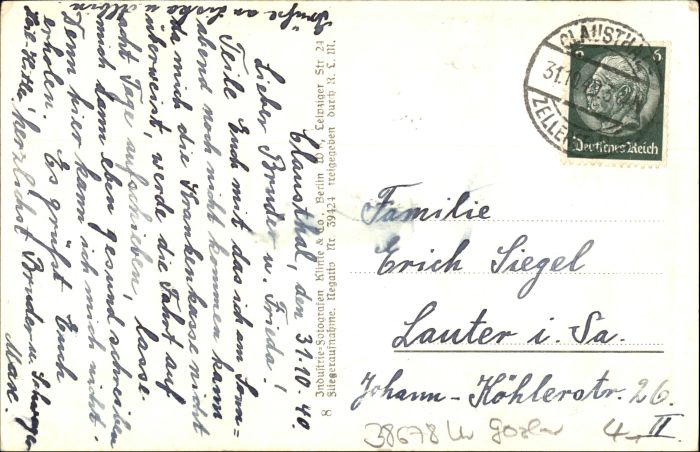 Clausthal, den 31.10.40.
Lieber Bruder u. Frieda!
Teile Euch mit das ich am Sonn=
abend noch nicht kommen kann
da mich die Krankenkasse nicht
überweist, werde die Fahrt auf
acht Tage aufschieben, lasse
mich dann eben gesund schreiben
Denn hier kann ich mich nicht
erholen. Es grüßt Euch
herzlichst Bruder u. Schwager
Max.
Grüße an
8 Industrie-Fotografen Klinke & Co., Berlin W 8, Leipziger Str 24
Fliegeraufnahme. Negativ Nr 39424 freigegeben durch R. L. M.
CLAUSTHAL
31.10.40
ZELLERF
6 6
Deutsches Reich
Familie
Erich Siegel
Lauter i. Sa.
Johann-Köhlerstr. 26.
II
38678 Goslar 4,-